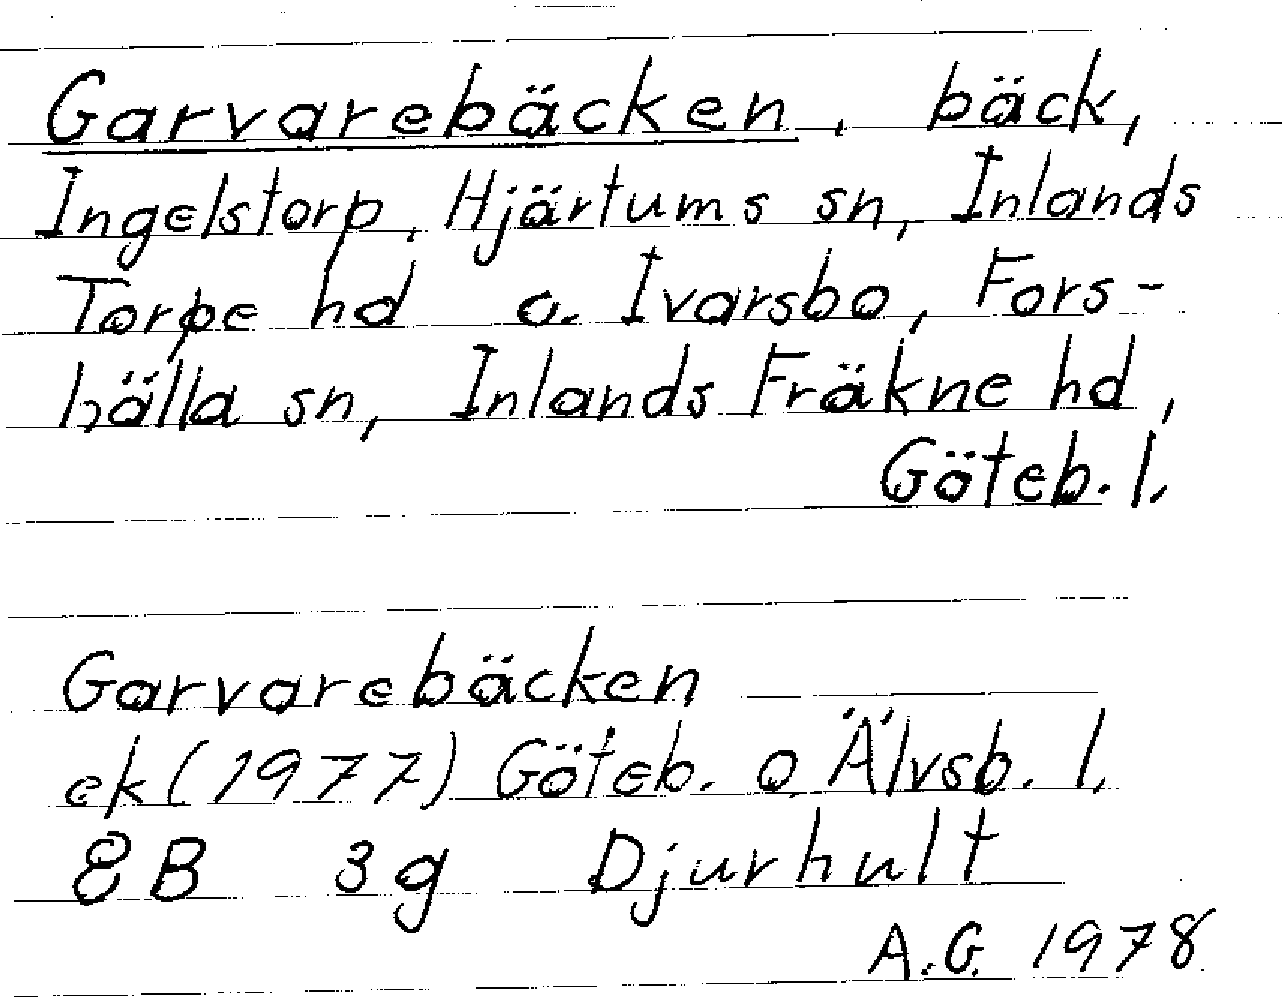 Garvarebäcken, bäck,
Ingelstorp, Hjärtums sn, Inlands
Torpe hd o. Ivarsbo, Fors-
hälla sn, Inlands Fräkne hd,
Göteb. l.
Garvarebäcken
ek (1977) Göteb. o. Älvsb. l.
8B 3g Djurhult
A.G. 1978